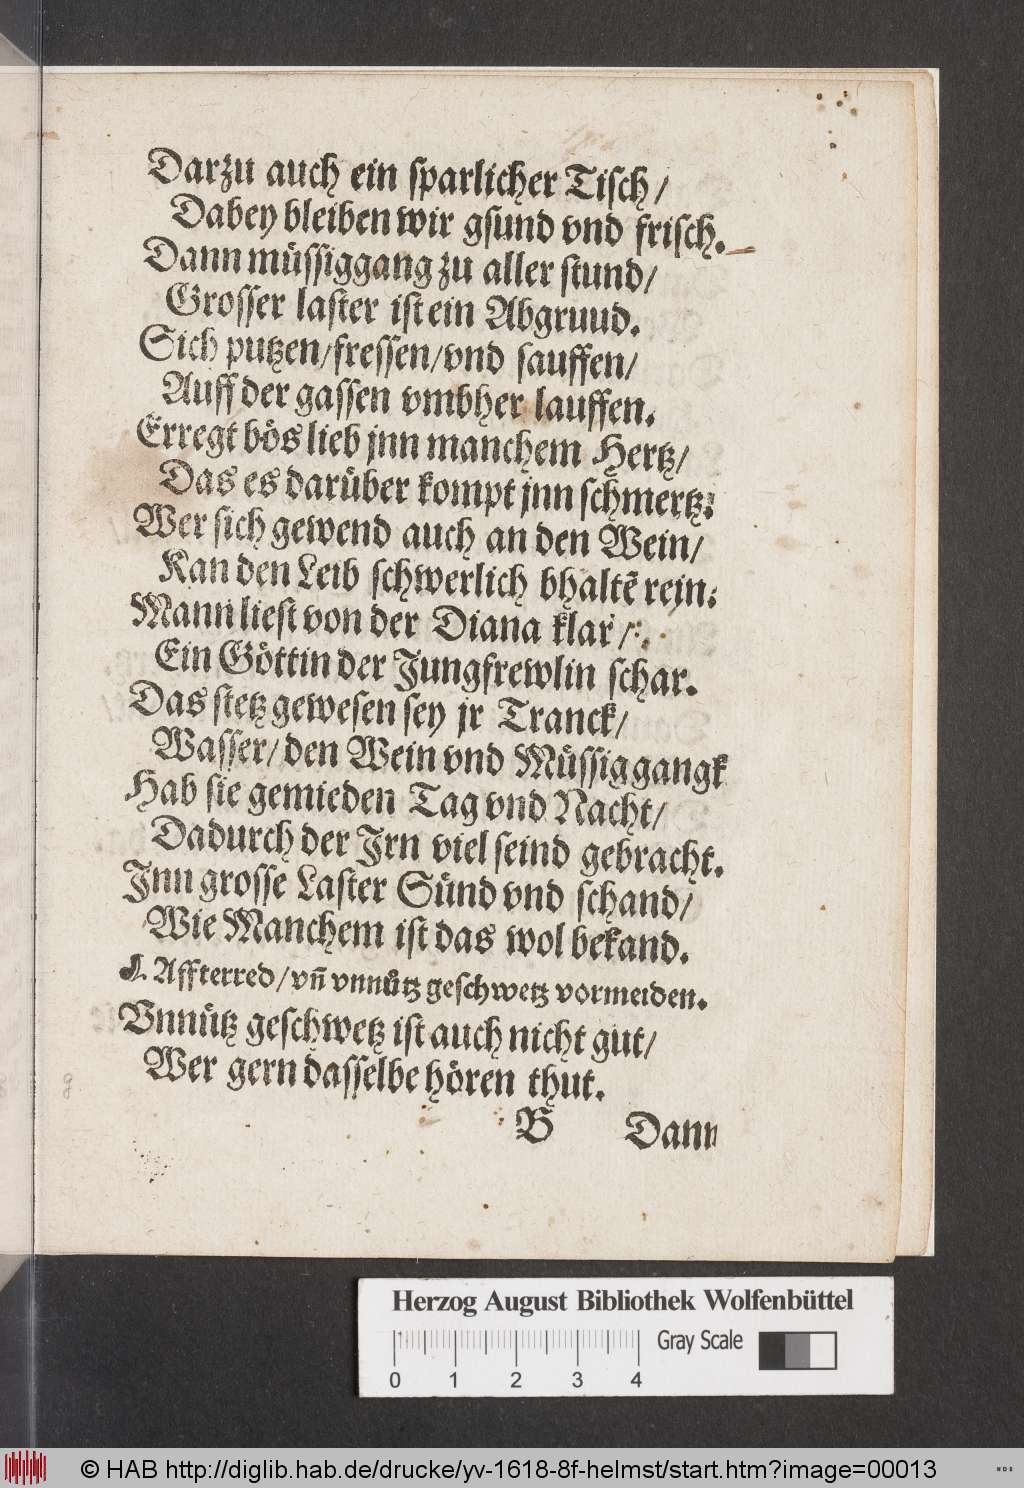 Darzu auch ein sparlicher Tisch/
Dabey bleiben wir gsund vnd frisch.
Dann müssiggang zu aller stund/
Grosser laster ist ein Abgruud.
Sich putzen/fressen/vnd sauffen/
Auff der gassen vmbher lauffen.
Erregt bös lieb jnn manchem Hertz/
Das es darüber kompt jnn schmertz:
Wer sich gewend auch an den Wein/
Kan den Leib schwerlich bhaltē rein:
Mann liest von der Diana klar/
Ein Göttin der Jungfrewlin schar.
Das stetz gewesen sey jr Tranck/
Wasser/den Wein vnd Müssiggangk
Hab sie gemieden Tag vnd Nacht/
Dadurch der Irn viel seind gebracht.
Inn grosse Laster Sünd vnd schand/
Wie Manchem ist das wol bekand.
Affterred/vn̄ vnnütz geschwetz vormeiden.
Vnnütz geschwetz ist auch nicht gut/
Wer gern dasselbe hören thut.
B Dann
Herzog August Bibliothek Wolfenbüttel
Gray Scale
0 1 2 3 4
© HAB http://diglib.hab.de/drucke/yv-1618-8f-helmst/start.htm?image=00013